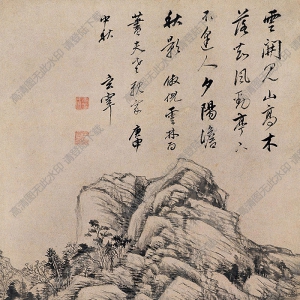 雲開見山高木
落知風勁亭下
不逢人夕陽澹
秋影 倣倪雲林為
夫老親家 庚申
中秋 玄宰